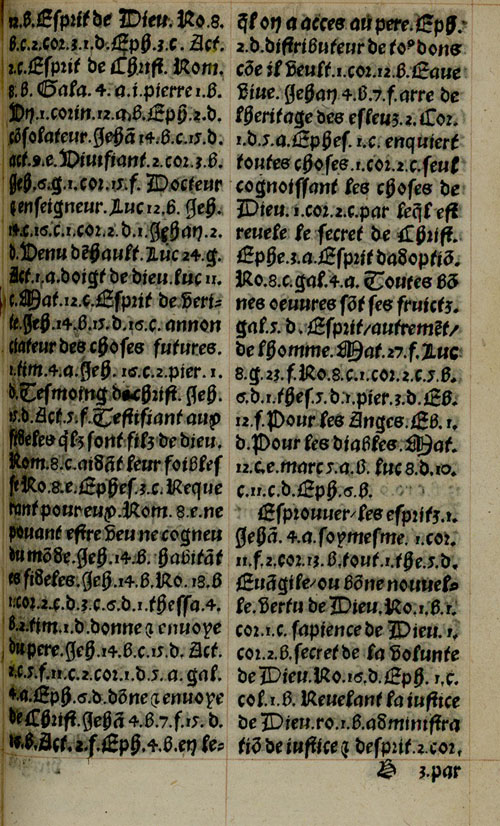 12.b. Esprit de Dieu. Ro.8.
b.c.2.cor.3.1.d. Eph.3.c. Act.
2.c. Esprit de Christ. Rom.
8.b. Gala. 4. a. i. pierre 1.b.
Vn. 1. corin. 12. a, b. Eph. 2. d.
cõsolateur. Jehã 14.b.c.15.d.
act. 9.e. Viuifiant. 2. cor. 3. b.
Jeh.6.g.1.cor.15.f. Docteur
⁊ enseigneur. Luc 12.b. Jeh.
14.c.16.c.1.cor.2.d.1. Jehan. 2.
d. Venu dẽhault. Luc 24. g.
Act. 1. a. doigt de dieu. luc 11.
c. Mat. 12. c. Esprit de veri-
te. Jeh. 14. b. 15. d. 16. c. annon
ciateur des choses futures.
1. tim. 4. a. Jeh. 16. c. 2. pier. 1.
d. Tesmoing de christ. Jeh.
15.d. Act. 5. f. Testifiant aux
fideles qlz sont filz de dieu.
Rom. 8. c. aidãt leur foibles
se Ro. 8. e. Ephes. 3. c. Reque
rant pour eux. Rom. 8. e. ne
pouant estre veu ne cogneu
du mõde. Jeh. 14. b. habitãt
es fideles. Jeh. 14. b. Ro. 18. b
1.cor.2.c.d.3.c.6.d.1. thessa. 4.
b. 2. tim. 1. d. donne ⁊ enuoye
du pere. Jeh. 14. b. c. 15. d. Act.
2.c.5.f.11.c.2.cor.1.d.5.a. gal.
4.a. Eph. 6. d. dõne ⁊ enuoye
de Christ. Jehã 4.b.7.f.15.d.
16.b. Act. 2. f. Eph. 4. b. en le-
ql̃ on a acces au pere. Eph.
2. d. distributeur de toꝰ dons
cõe il veult. 1. cor. 12. b. Eaue
viue. Jehan 4. b. 7. f. arre de
lheritage des esleuz. 2. Cor.
1. d. 5. a. Ephes. 1. c. enquiert
toutes choses. 1. cor. 2. c. seul
cognoissant les choses de
Dieu. 1. cor. 2. c. par leql̃ est
reuele le secret de Christ.
Ephe. 3. a. Esprit dadoptiõ.
Ro. 8. c. gal. 4. a. Toutes bõ
nes oeuures sõt ses fruictz.
gal. 5. d. Esprit/ autremẽt/
de lhomme. Mat. 27. f. Luc
8. g. 23. f. Ro. 8. c. 1. cor. 2. c. 5. b.
6. d. 1. thes. 5. d. 1. pier. 3. d. Eb.
12. f. Pour les Anges. Eb. 1.
d. Pour les diables. Mat.
12. c. e. marc 5. a. b. luc 8. d. 10.
c. 11. c. d. Eph. 6. b.
Esprouuer/ les espritz. 1.
Jehã. 4. a. soymesme. 1. cor.
11. f. 2. cor. 13. b. tout. 1. the. 5. d.
Euãgile/ ou bõne nouuel-
le. vertu de Dieu. Ro. 1. b. 1.
cor. 1. c. sapience de Dieu. 1.
cor. 2. b. secret de la volunte
de Dieu. Ro. 16. d. Eph. 1. c.
col. 1. b. Reuelant la iustice
de Dieu. ro. 1. b. administra
tiõ de iustice ⁊ desprit. 2. cor.
B 3. par